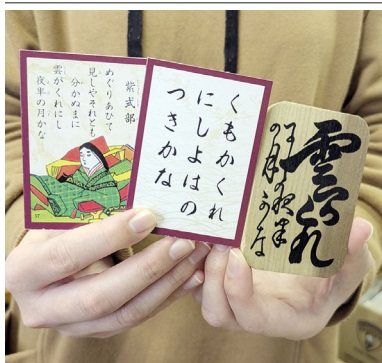 紫式部
めぐりあひて
見しやそれとも
分かぬまに
雲がくれにし
夜半の月かな
57
くもかくれ
にしよはの
つきかな
雲がくれ
夜半
の月かな